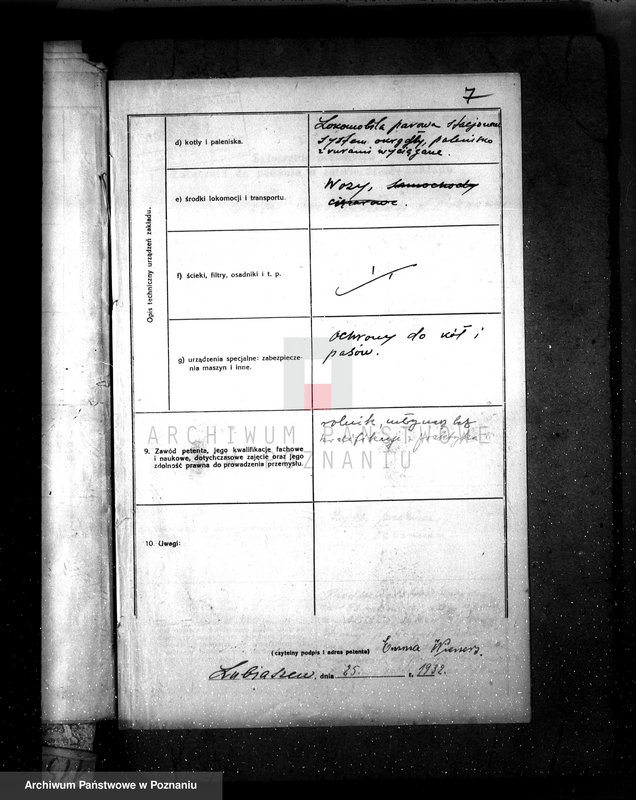 7
Opis techniczny urządzeń zakładu.
d) kotły i paleniska.
Lokomobila parowa stacjonow.
system okrągły, palenisko
z rurami wyciągane.
e) środki lokomocji i transportu.
Wozy, samochody
ciężarowe.
f) ścieki, filtry, osadniki i t. p.
g) urządzenia specjalne: zabezpiecze-
nia maszyn i inne.
ochrony do kół i
pasów.
9. Zawód petenta, jego kwalifikacje fachowe
i naukowe, dotychczasowe zajęcie oraz jego
zdolność prawna do prowadzenia przemysłu.
rolnik
kwalifikacji
10. Uwagi:
(czytelny podpis i adres petenta) Emma
dnia 25. r. 1932.
ARCHIWUM PAŃSTWOWE
W POZNANIU
Archiwum Państwowe w Poznaniu